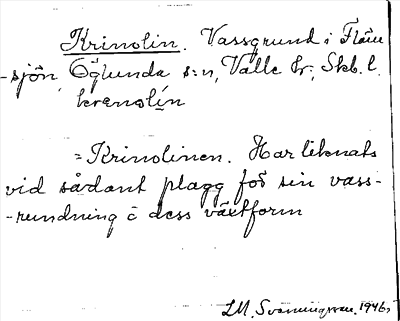 Krinolin. Vassgrund i Fläm
-sjön, Öglunda s:n, Valle hr; Skb. l.
krenolín
= Krinolinen. Har liknats
vid sådant plagg för sin vass-
-rundning å dess växtform
LM. Svenningsson. 1946.